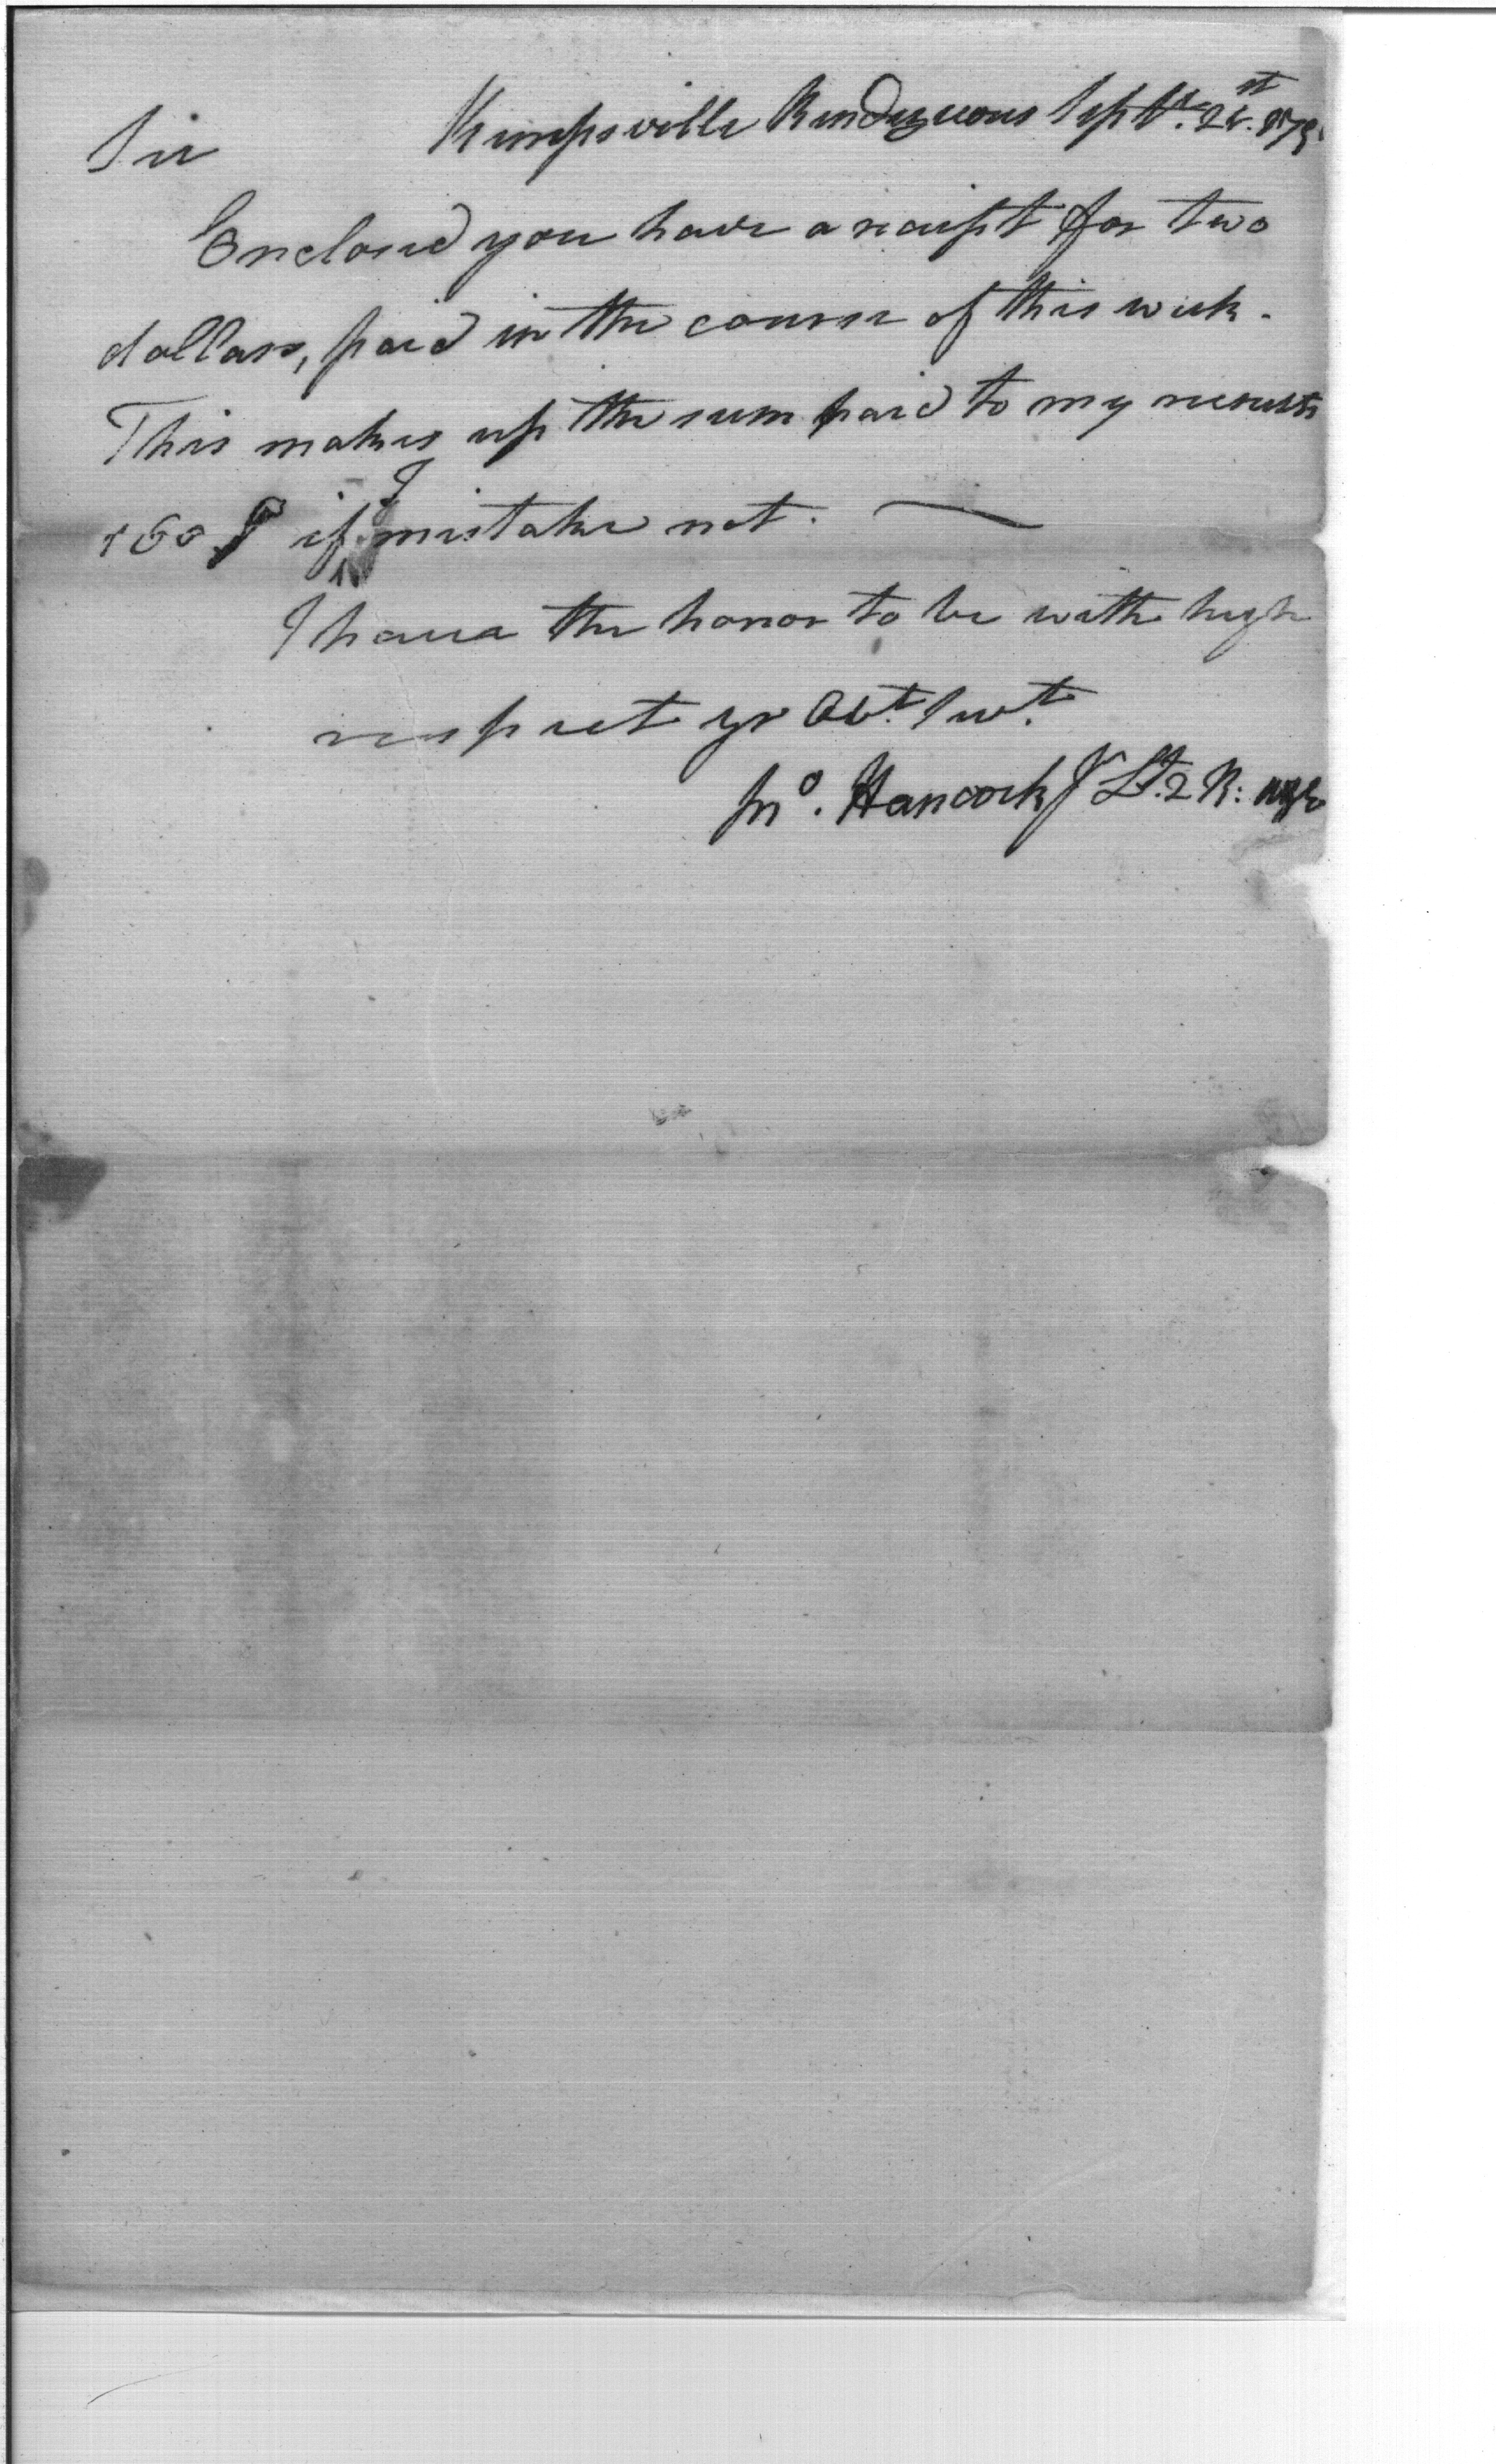 Kempsville Rendezvous Sept.
Sir
Enclosed you have a receipt for two
dollars, paid in the course of this week.
This makes up the sum paid to my recruits
160 $ if I mistake not.
I have the honor to be with high
respect yr Obt. Servt.
Jno. Hancock Lt. 2 R: